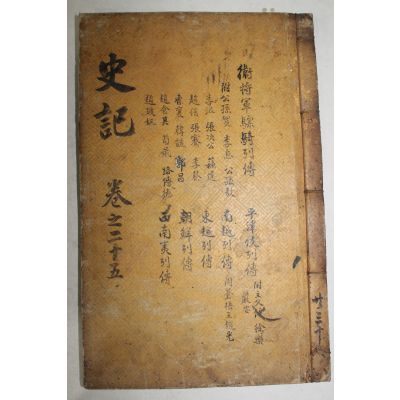 衛將軍驃騎列傳
附公孫賀 李息 公孫敖
李沮 張次公 蘇建
趙信 張騫 李蔡
曹襄 韓說 郭昌
趙食其 荀彘 路博德
趙破奴
平津侯列傳 附主父 徐樂
嚴安
南越列傳 附蒼梧王趙光
東越列傳
朝鮮列傳
西南夷列傳
史記 卷之二十五